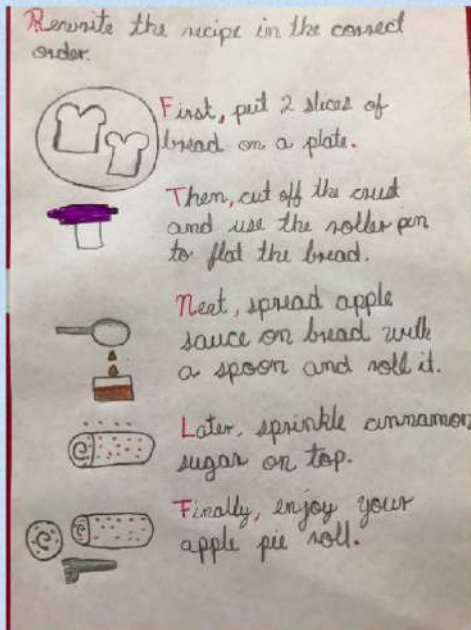 Rewrite the recipe in the correct
order.
First, put 2 slices of
bread on a plate.
Then, cut off the crust
and use the roller pen
to flat the bread.
Next, spread apple
sauce on bread with
a spoon and roll it.
Later, sprinkle cinnamon
sugar on top.
Finally, enjoy your
apple pie roll.